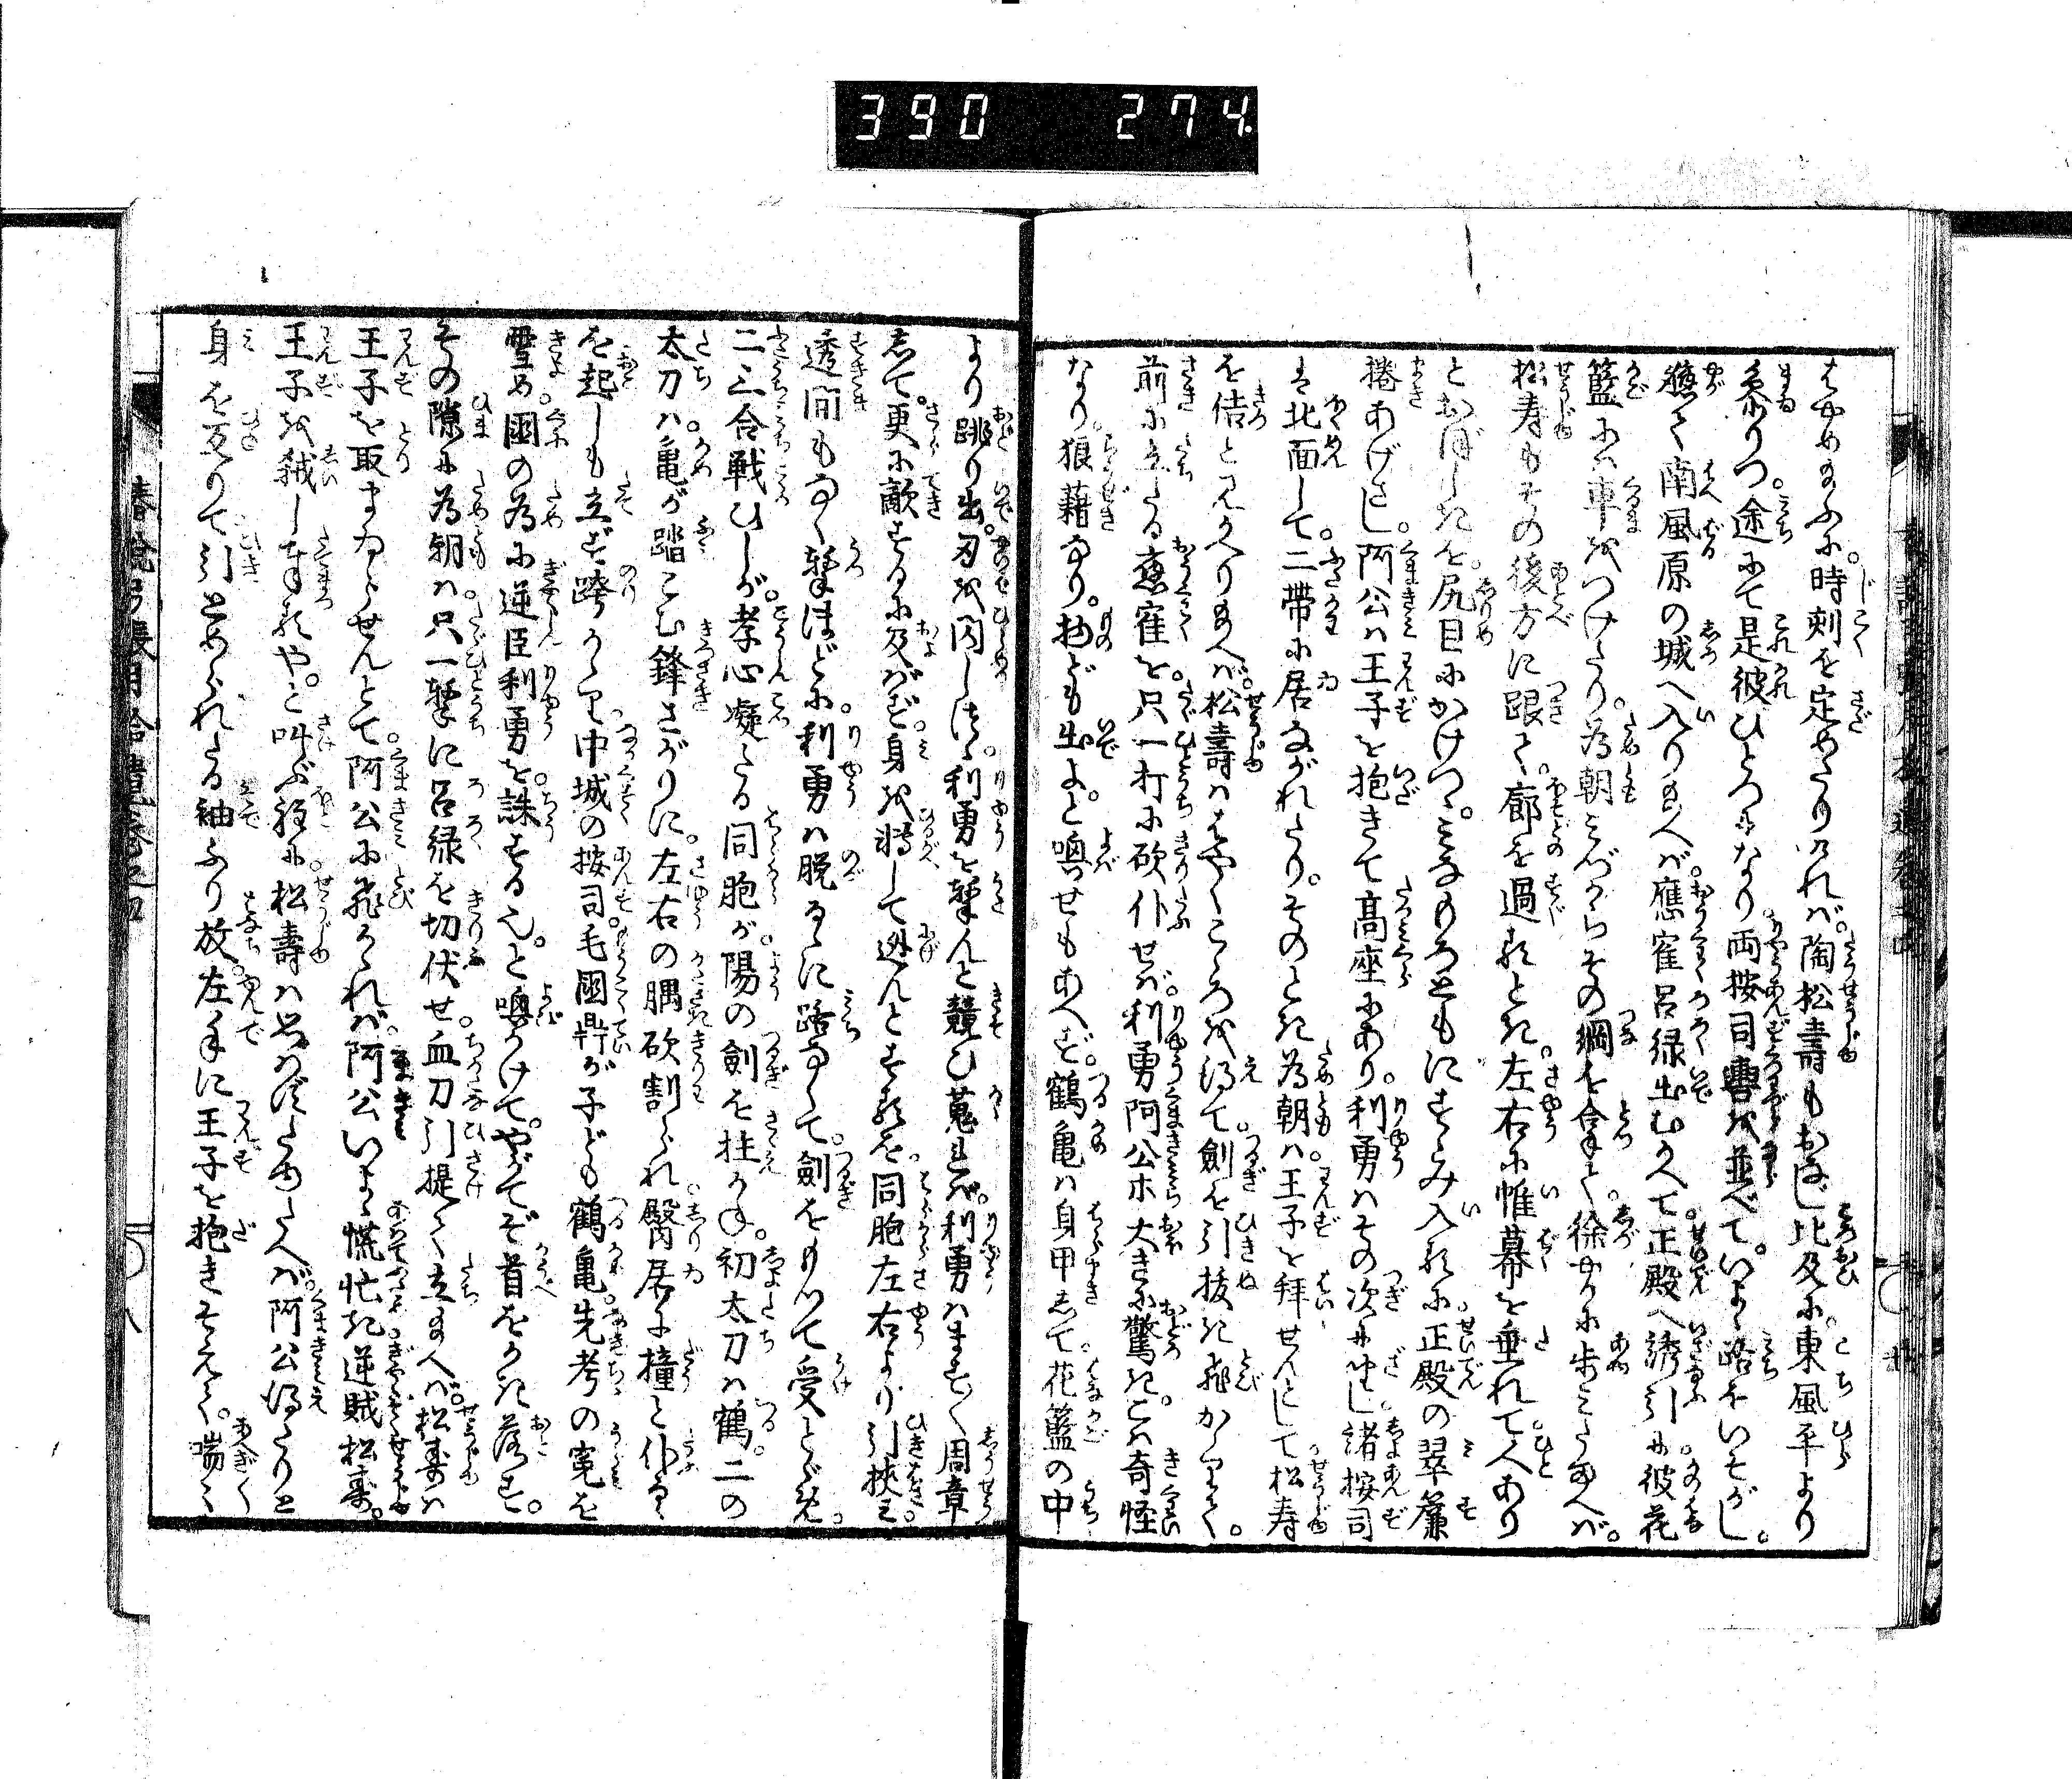 390 274.
はじめまうふに。時刻を定めたりければ。陶松壽もおなじ比及に。東風平より
参りつ。途にて是彼ひとつになり。両按司轡を並べて。いよゝ路をいそがし。
軈て南風原の城へ入り給へば。應寉呂緑出むかへて。正殿へ誘引に。彼花
籃には車をつけたり。為朝みづからその綱を合とりて。徐やかに歩み給へば。
松寿もその後方に跟て。廊を過るとき。左右に帷幕を垂れて。人あり
とおぼしきを。尻目にかけつゝ。みなもろともにすゝみ入るに。正殿の翠簾
捲あげさし。阿公は王子を抱きて高座にあり。利勇はその次に坐し。諸按司
は北面して。二帶に居ながれたり。そのとき為朝は。王子を拜せんとして。松寿
を佶と見かへり給へば。松壽ははやくこゝろを得て。劍を引抜き飛かゝりて。
前に立たる應寉を。只一打に砍仆せば。利勇阿公ホ大きに驚き。こは奇怪
なり。狼藉なり。物ども出よ。と喚せもあへず。鶴亀は身甲して。花籃の中
より跳り出。刃を閃しつゝ。利勇を撃んと競ひ蒐れば。利勇はますます周章
して。更に敵するに及ばず。身を翻して迯んとするを。同胞左右より引挾み。
透間もなく撃ほどに。利勇は脱るゝに路なくて。劍をもつて受とゞめ。
二三合戦ひしが。孝心凝たる同胞が。陽の劍を拄かね。初太刀は鶴。二の
太刀は。亀が踏こむ鋒さがりに。左右の腢砍割られ。臀居に撞と仆るゝ
を起しも立ず跨かゝり。中城の按司。毛國鼎が子ども鶴亀。先考の寃を
雪め。國の為に逆臣利勇を。誅するぞ。と喚かけて。やがてぞ首をかき落す。
その隙に為朝は。只一撃に呂緑を切伏せ。血刀引提て立給へば。松壽は
王子を取まゐらせんとて。阿公に飛かゝれば。阿公いよゝ慌忙き。逆賊松壽。
王子を弑し奉るや。と叫ぶ程に。松壽は思はずたゆたへば。阿公得たりと
身を反りて。引とめられたる袖ふり放。左手に王子を抱きそえて。喘々
椿説弓張月拾遺巻之四
八